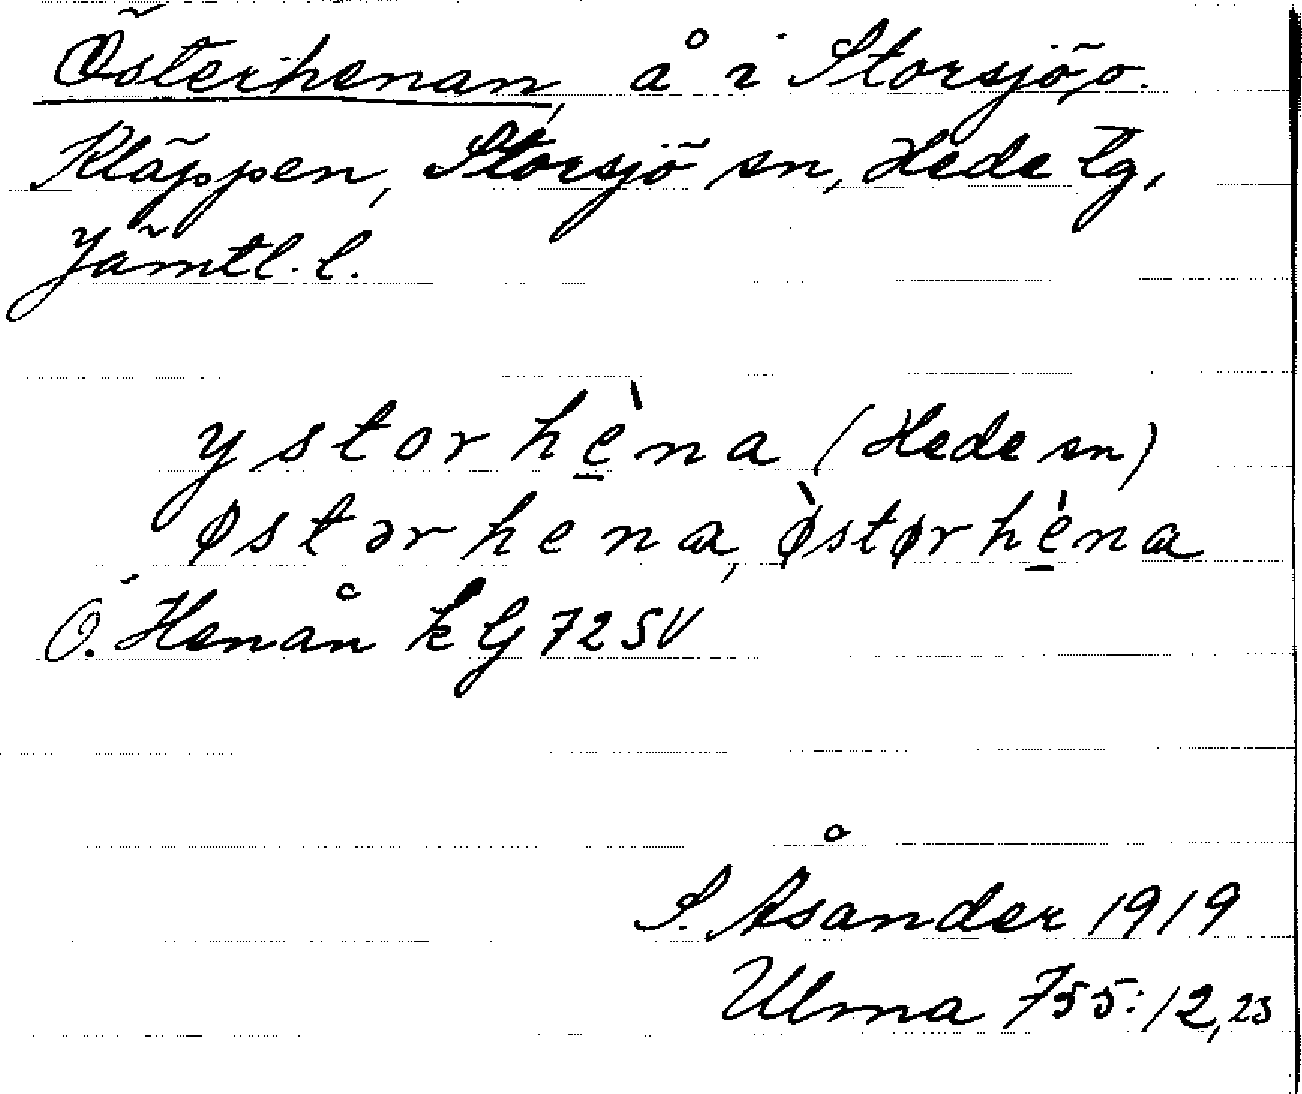 Österhenan, å i Storsjö o.
Kläppen, Storsjö sn, Hede tg,
Jämtl. l.
ystorhè̱na (Hede sn)
østərhena, ø̀størhè̱na
Ö. Henån kG 72 SV
S. Åsander 1919
Ulma 755:12,23